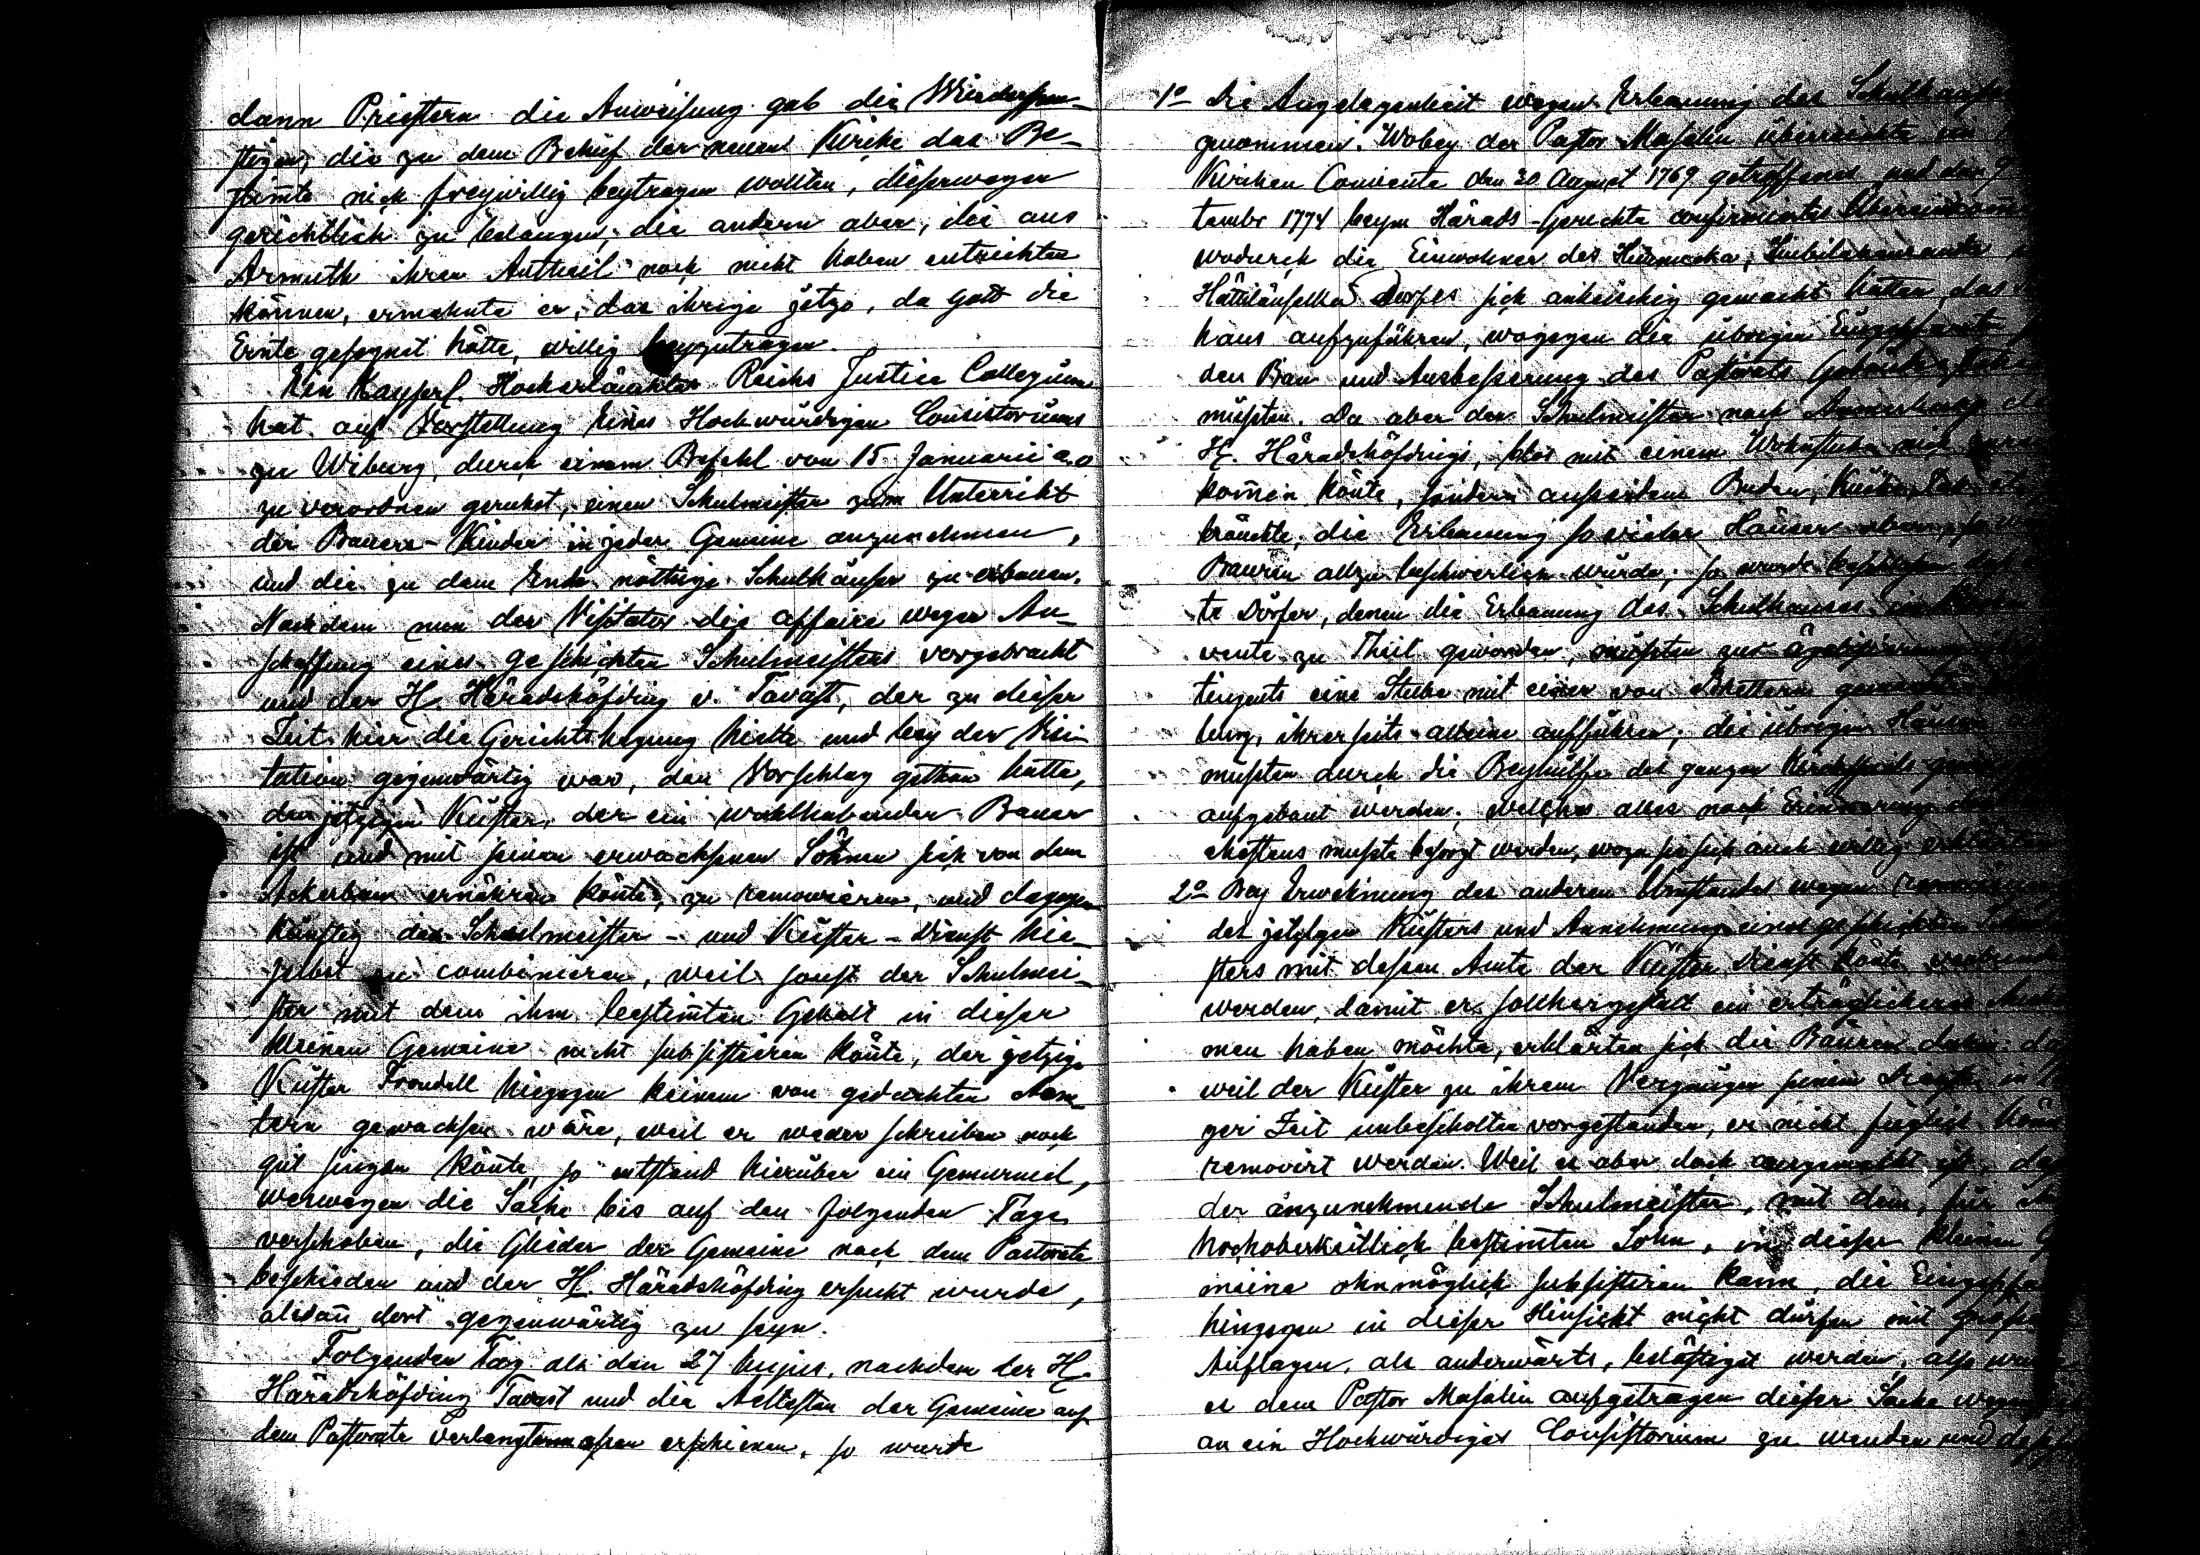 dann Priestern die Anweisung gab die Wiederspen-
stigen, die zu dem Behuf der neuen Kirche das Be-
stimte nich freywillig beytragen wollten, dieserwegen
gerichtlich zu belangen; die andern aber, die aus
Armuth ihren Antheil noch nicht haben entrichten
können, ermahnte er, das ihrige jetzo, da Gott die
Ernte gesegnet hätte, willig beyzutragen.
Ein Kayserl. Hocherlauchtes Reichs Justice Collegium
hat auf Vorstellung Eines Hochwürdigen Consistoriums
zu Wiburg, durch einem Befehl von 15 Januarii a.o
zu verordnen geruhet, einen Schulmeister zum Unterricht
der Bauern-Kinder in jeder Gemeine anzunehmen,
und die zu dem Ende nöthige Schulhäuser zu erbauen.
Nachdem nun der Visitator die affaire wegen An-
schaffung eines geschickten Schulmeisters vorgebracht
und der H. Häradshöfding v. Tavast, der zu dieser
Zeit hier die Gerichtshegung hielte und bey der Visi-
tation gegenwärtig war, den Vorschlag gethan hatte,
den jetzigen Küster, der ein wohlhabender Bauer
ist und mit seinen erwachsenen Söhnen sich von dem
Ackerbau ernähren könte, zu removieren, und dagegen
künftig den Schulmeister- und Küster-Dienst hie-
selbst zu combinieren, weil sonst der Schulmei-
ster mit dem ihm bestimten Gehalt in dieser
kleinen Gemeine nicht subsistieren könte, der jetzige
Küster Frondell hiegegen keinem von gedachten Aem-
tern gewachsen wäre, weil er weder schreiben noch
gut singen könte, so entstand hierüber ein Gemurmel,
weswegen die Sache bis auf den folgenden Tage
verschoben, die Glieder der Gemeine nach dem Pastorate
beschieden und der H. Häradshöfding ersucht wurde,
alsdañ dort gegenwärtig zu seyn.
Folgenden Tag als den 27 hujus, nachdem der H.
Häradshöfding Tavast und die Aeltesten der Gemeine auf
dem Pastorate verlangtermassen erschienen, so wurde
1o Die Angelegenheit wegen Erbauung des Schulhauses
genommen. Wobey der Pastor Masalin überreichte ein
Kirchen Convente den 30 August 1769 getroffenes und den 9
tembr 1774 beym Härads-Gerichte confirmiertes
wodurch die Einwohner des
Dorfes sich anheischig gemacht hätten, das
haus aufzuführen, wogegen die übrigen
den Bau und Ausbesserung des Pastorats Gebäude
müsten. Da aber der Schulmeister nach
H. Häradshöfdings, blos mit einem Wohnstube nich
komen könte, sondern ausserdem Buden,
bräuchte, die Erbauung so vieler Häuser aber
Bauren allzu beschwerlich würde, so wurde beschlossen
te Dörfer, denen die Erbauung des Schulhauses
vente zu Theil geworden, müsten zur
tingents eine Stube mit einer von Brettern
lung, ihrerseits alleine aufführen; die übrigen Häuser
müsten durch die Beyhülfe des ganzen Kirchspiels
aufgebaut werden; welches alles nach Erinnerung
chestens muste besorgt werden, wozu sie sich auch willig erklärten
2o Bey Erwehnung des anderen Umstandes wegen
des jetzigen Küsters und Annehmung eines geschickten
sters mit dessen Amte der Küster Dienst könte
werden, damit er solchergestalt ein erträglicheres
men haben möchte, erklärten sich die Bauren dahin: daß
weil der Küster zu ihrem Vergnügen seinem Dienste in
ger Zeit unbescholten vorgestanden, er nicht füglich
removirt werden. Weil es aber doch ausgemacht ist, daß
der anzunehmende Schulmeister, mit dem, für
hochoberkeitlich bestimten Lohn, in dieser kleinen
meine ohnmöglich subsistieren kann, die
hingegen in dieser Hinsicht nicht dürfen mit
Auflagen, als anderwärts, belästiget werden, also
es dem Pastor Masalin aufgetragen dieser Sache wegen
an ein Hochwürdiges Consistorium zu wenden und